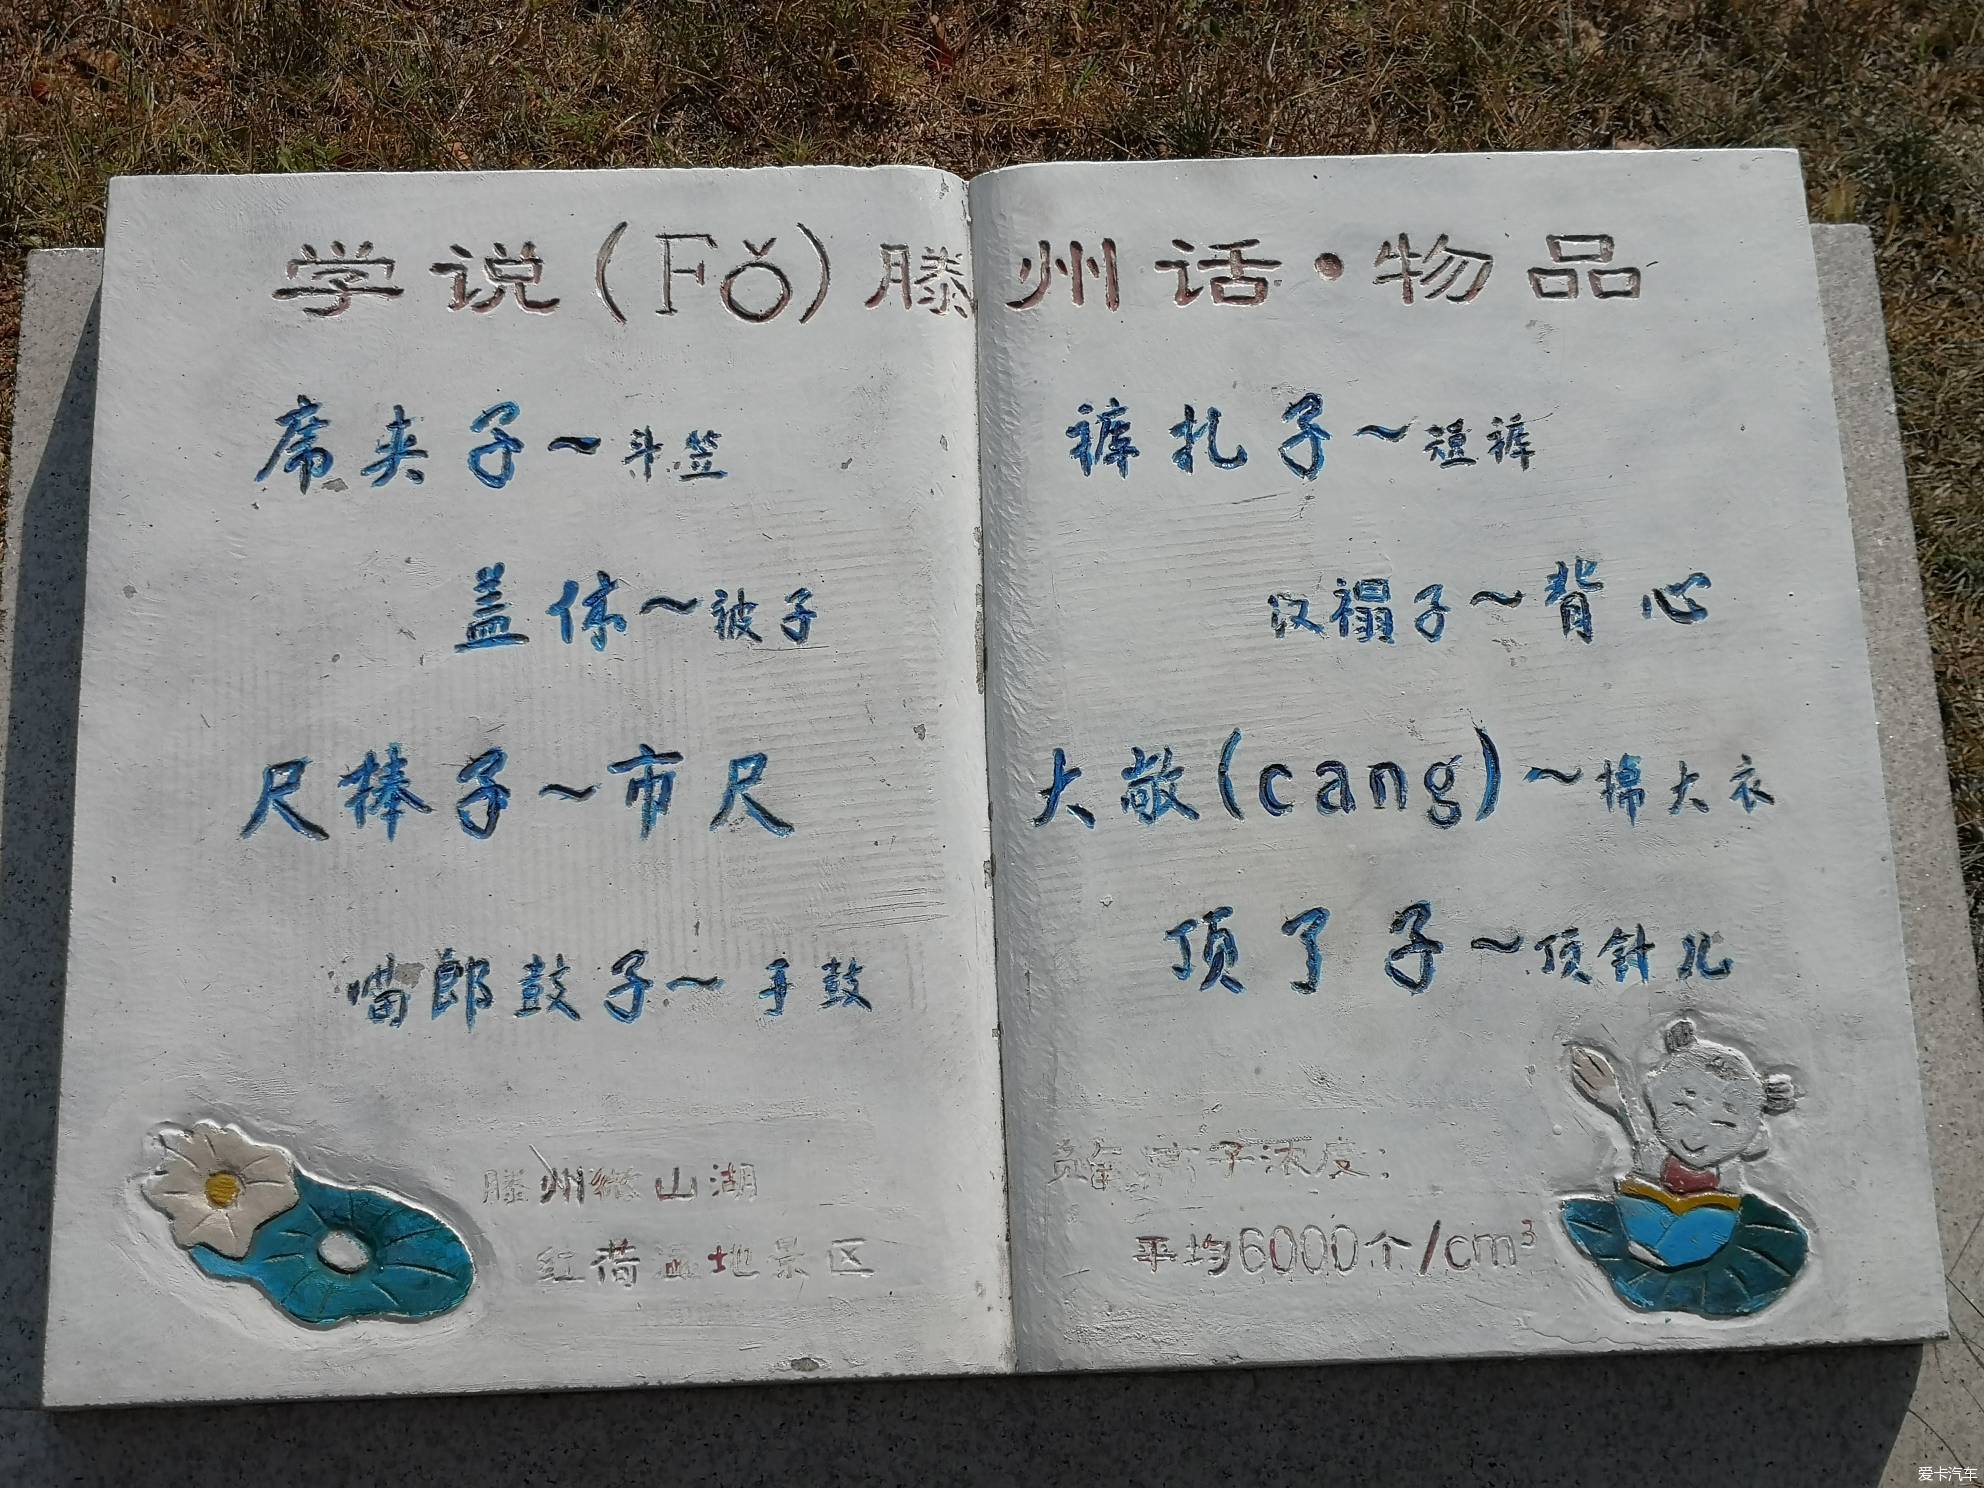 学说(Fǒ)滕州话·物品
席夹子~斗笠
盖体~被子
尺棒子~市尺
噹郎鼓子~手鼓
滕州微山湖
红荷湿地景区
裤扎子~短裤
汉褟子~背心
大敞(cang)~棉大衣
顶了子~顶针儿
负氧离子浓度:
平均6000个/cm³
爱卡汽车